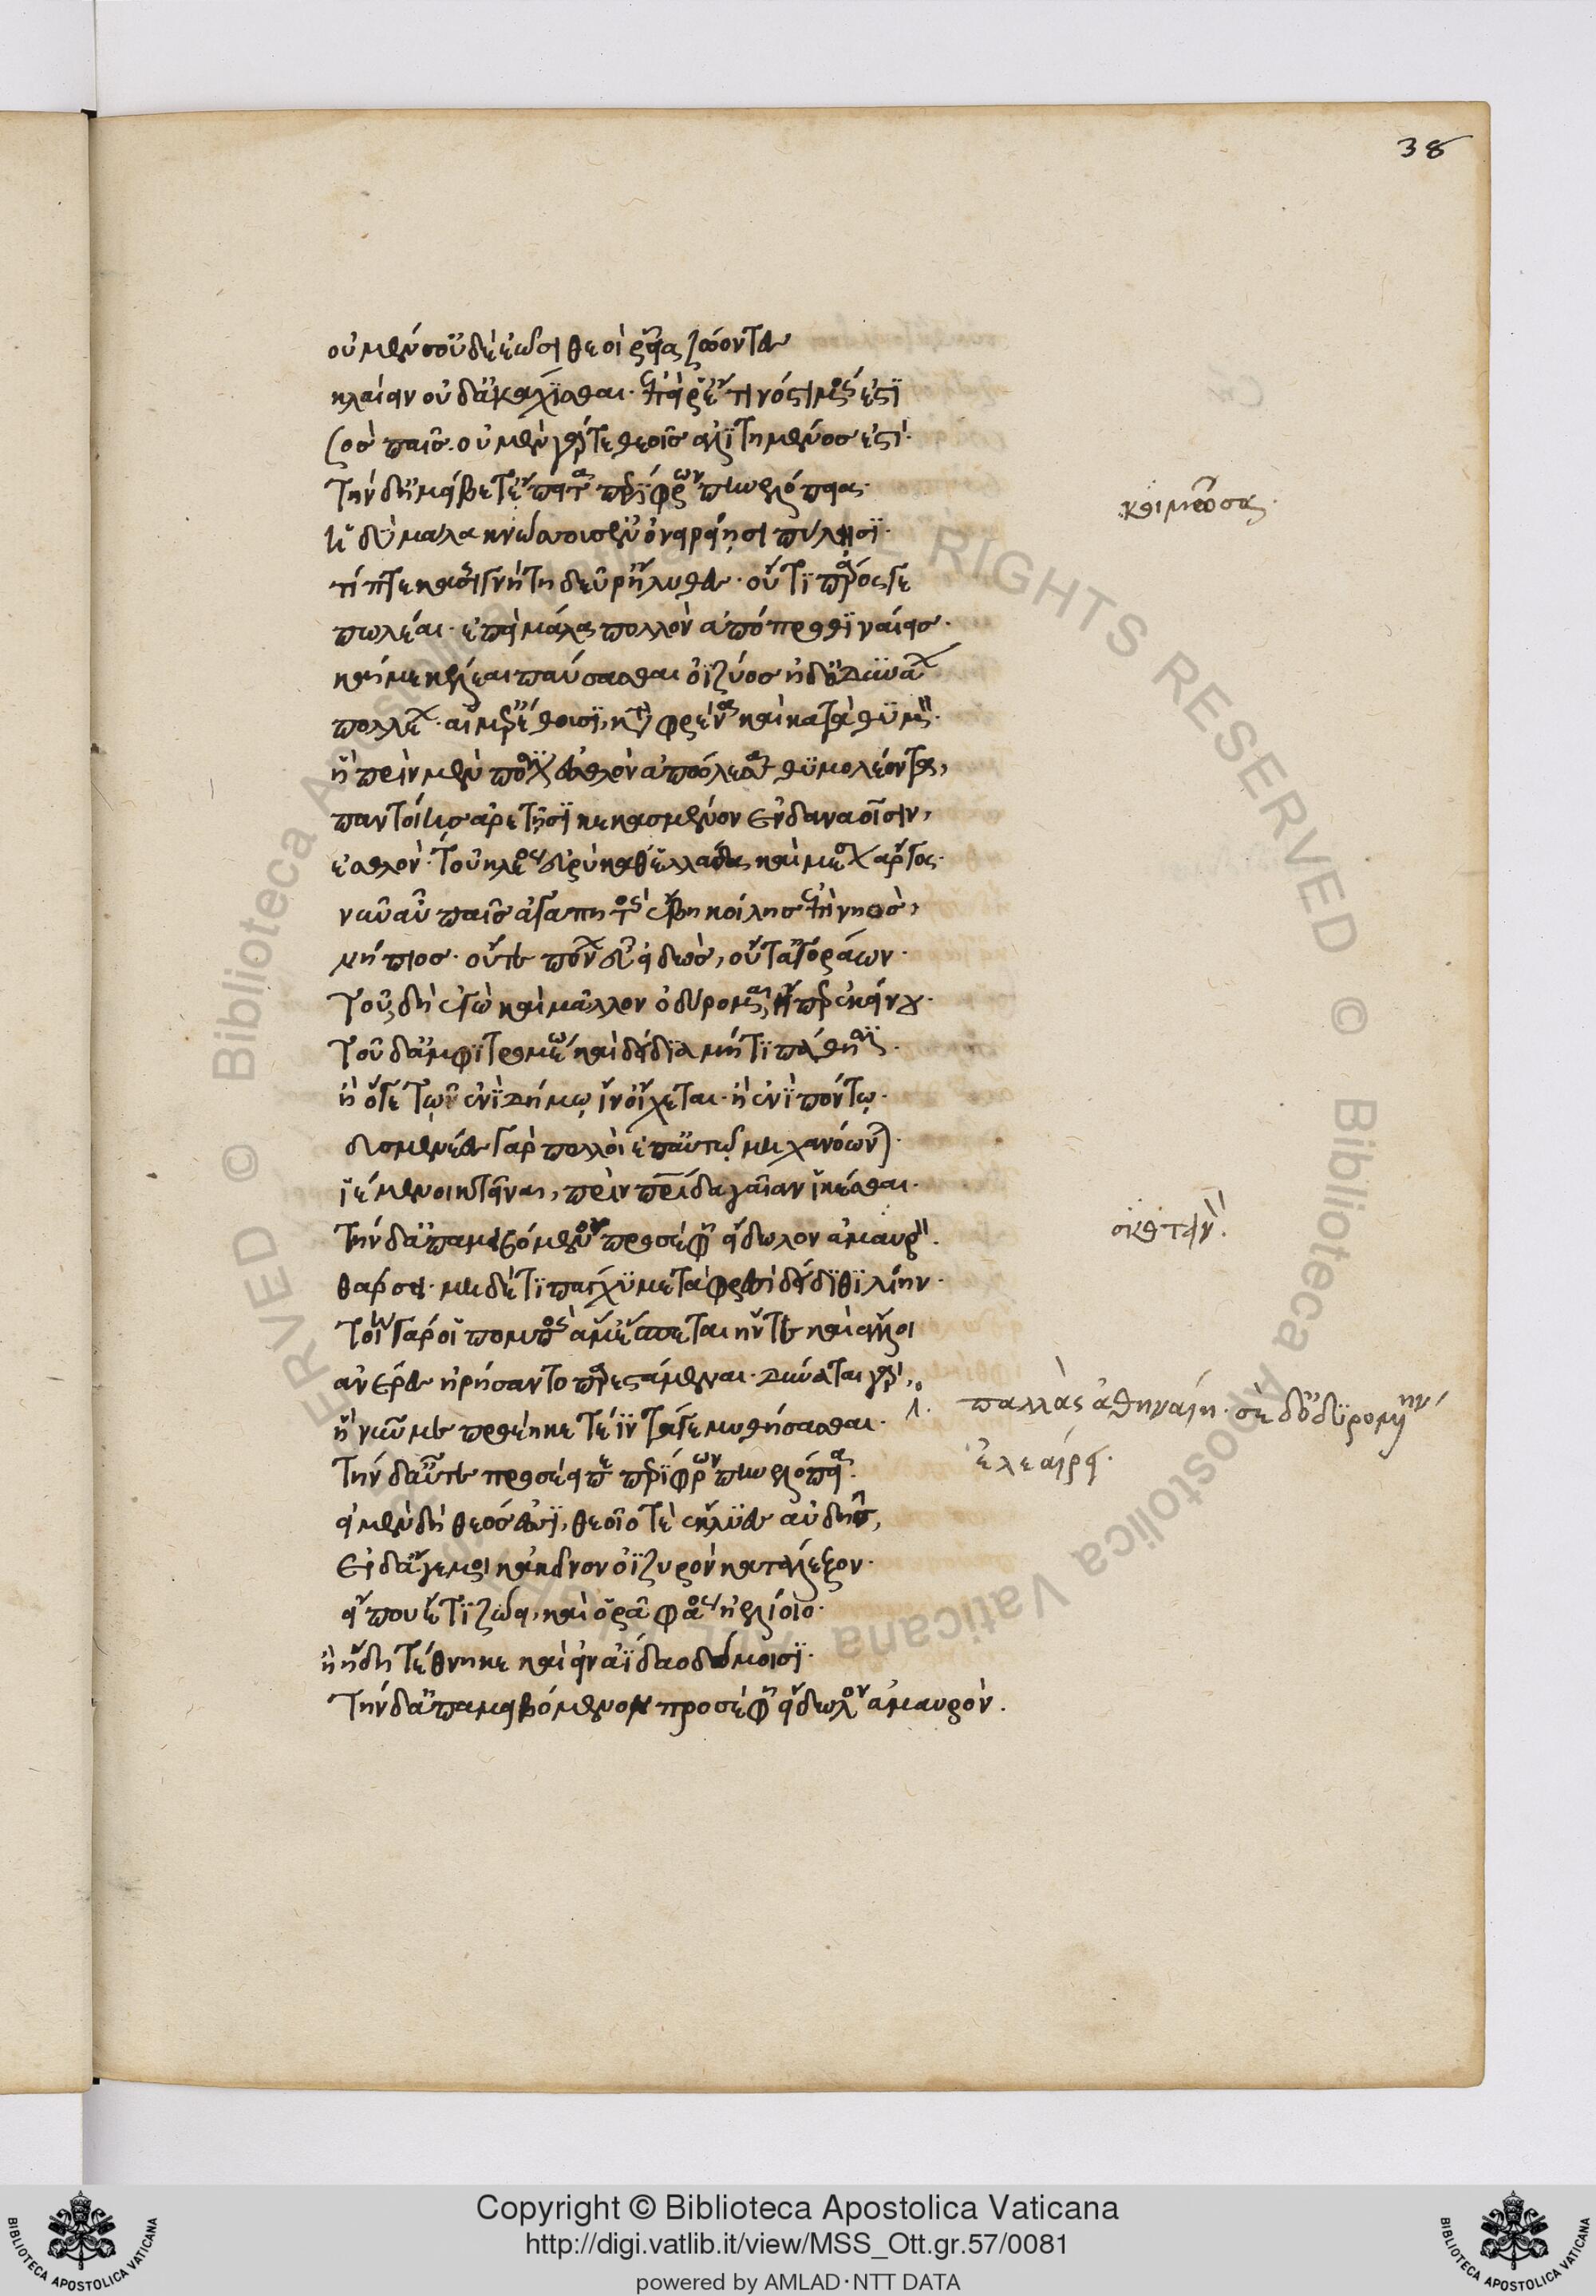 38
οὐ μέν σ' οὐδὲ ἐῶσι θεοὶ ῥεῖα ζώοντες
κλαίειν οὐδ' ἀκάχησθαι. ἐπεί ῥ' ἔτι νόστιμός ἐστι
σὸς παῖς. οὐ μὲν γάρ τι θεοῖς ἀλιτήμενός ἐστι.
τὴν δ' ἠμείβετ' ἔπειτα περίφρων πηνελόπεια.
ἡδὺ μάλα κνώσσουσ' ἐν ὀνειρείῃσι πύλῃσι.
τίπτε κασιγνήτη δεῦρ' ἤλυθες. οὔτι πάρος γε
πωλέαι. ἐπεὶ μάλα πολλὸν ἀπόπροθι ναίεις.
καί με κέλεαι παύσασθαι ὀϊζύος ἠδ' ὀδυνάων
πολλέων. αἵ μ' ἐρέθουσι, κατὰ φρένα καὶ κατὰ θυμόν.
ἣ πρὶν μὲν πόσιν ἐσθλὸν ἀπώλεσα θυμολέοντα,
παντοίης ἀρετῇσι κεκασμένον ἐν δαναοῖσιν,
ἐσθλόν. τοῦ κλέος εὐρὺ καθ' ἑλλάδα καὶ μέσον ἄργος.
νῦν αὖ παῖς ἀγαπητὸς ἔβη κοίλης ἐπὶ νηός,
νήπιος. οὔτε πόνων εὖ εἰδώς, οὔτ' ἀγοράων.
τοῦ δὴ ἐγὼ καὶ μᾶλλον ὀδύρομαι, ἤπερ ἐκείνου.
τοῦ δ' ἀμφιτρομέω καὶ δείδια μήτι πάθῃσι.
ἢ ὅγε τῶν ἐνὶ δήμῳ ἵν' οἴχεται. ἢ ἐνὶ πόντῳ.
δυσμενέες γὰρ πολλοὶ ἐπ' αὐτῷ μηχανόωνται.
ἱέμενοι κτεῖναι, πρὶν πατρίδα γαῖαν ἱκέσθαι.
τὴν δ' ἀπαμειβόμενον προσέφη εἴδωλον ἀμαυρόν.
θάρσει. μηδέ τι πάγχυ μετὰ φρεσὶ δείδιθι λίην.
τοίη γάρ οἱ πομπὸς ἅμ' ἕπεται ἥντε καὶ ἄλλοι
ἀνέρες ἠρήσαντο παρεστάμεναι. δύναται γάρ.
ἣ νῦν με προέηκε τεῒν τάδε μυθήσασθαι.
τὴν δ' αὖτε προσέειπε περίφρων πηνελόπεια.
εἰ μὲν δὴ θεός ἐσσι, θεοῖό τε ἔκλυες αὐδῆς,
εἰ δ' ἄγε μοι καὶ κεῖνον ὀϊζυρὸν κατάλεξον.
εἴ που ἔτι ζώει, καὶ ὁρᾷ φάος ἠελίοιο.
ἢ ἤδη τέθνηκε καὶ εἰν ἀΐδαο δόμοισι.
τὴν δ' ἀπαμειβόμενον προσέφη εἴδωλον ἀμαυρόν.
παλλὰς ἀθηναίη. σὲ δ' ὀδυρομένην
ἐλεαίρει.
σκοτεινόν.
Copyright © Biblioteca Apostolica Vaticana
http://digi.vatlib.it/view/MSS_Ott.gr.57/0081
powered by AMLAD·NTT DATA
BIBLIOTECA APOSTOLICA VATICANA
BIBLIOTECA APOSTOLICA VATICANA